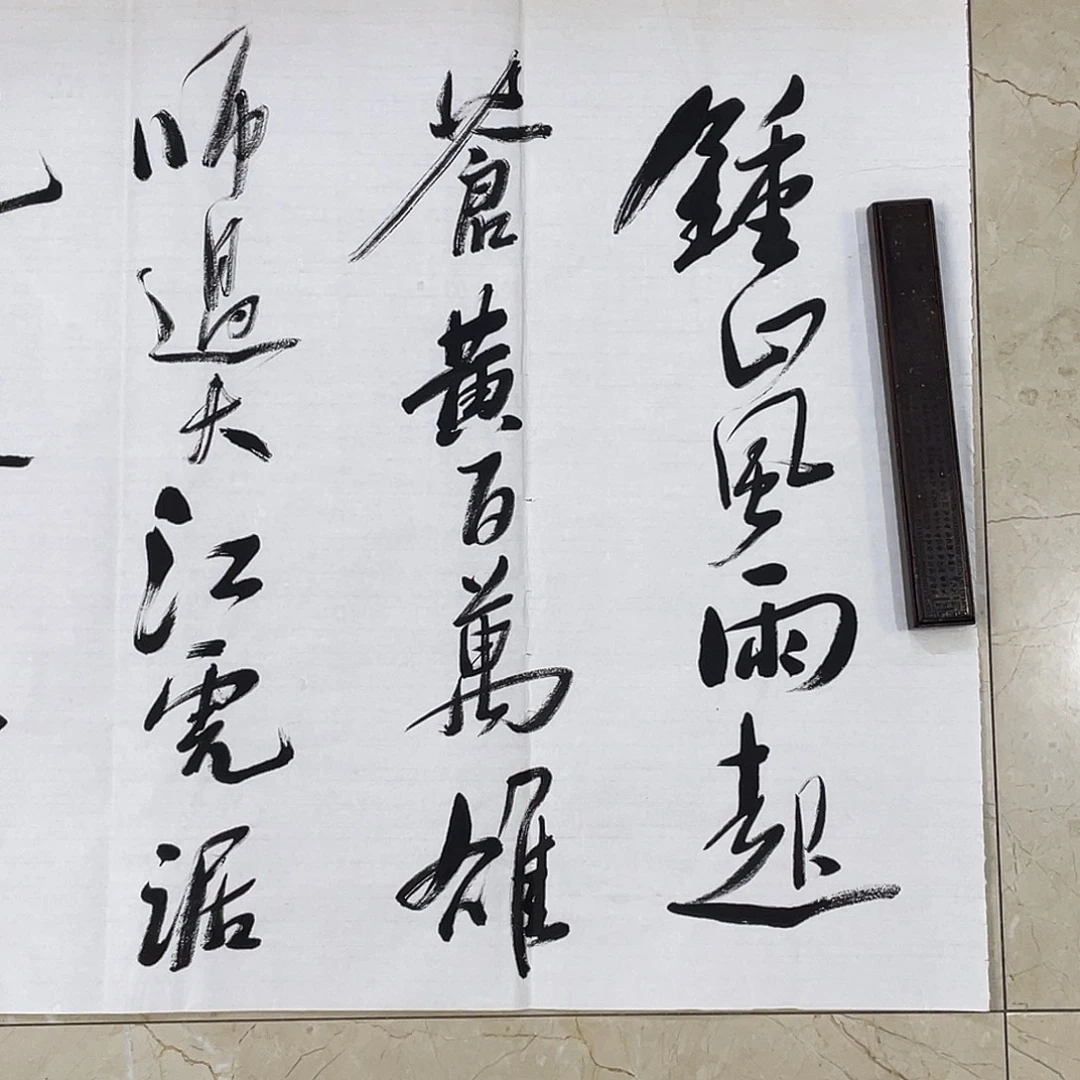 鍾山風雨起
蒼黃百萬雄
師過大江虎踞